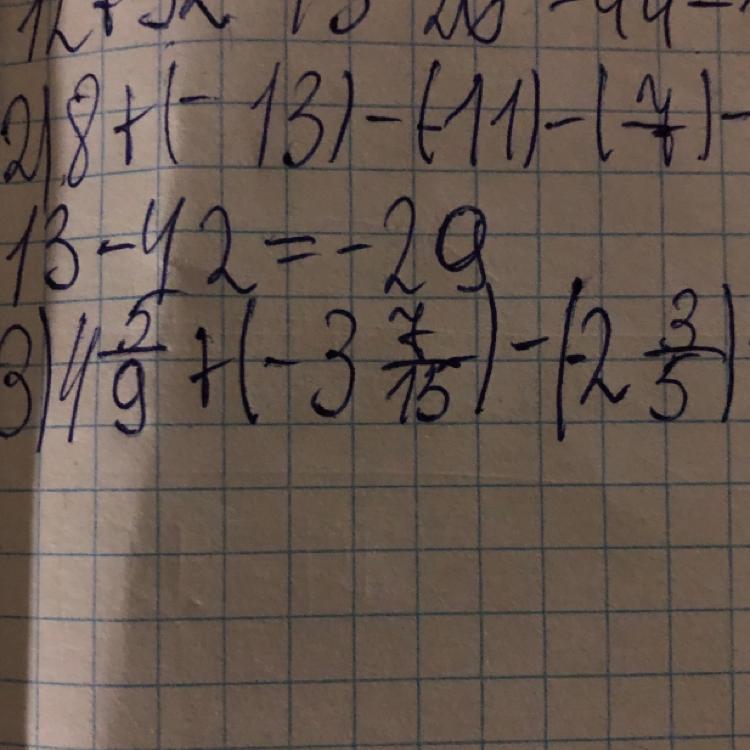 12+32
2) 8+(-13)-(-11)-(7)-
13-42=-29
3) 4 5/9 + (-3 7/15) - (-2 3/5)